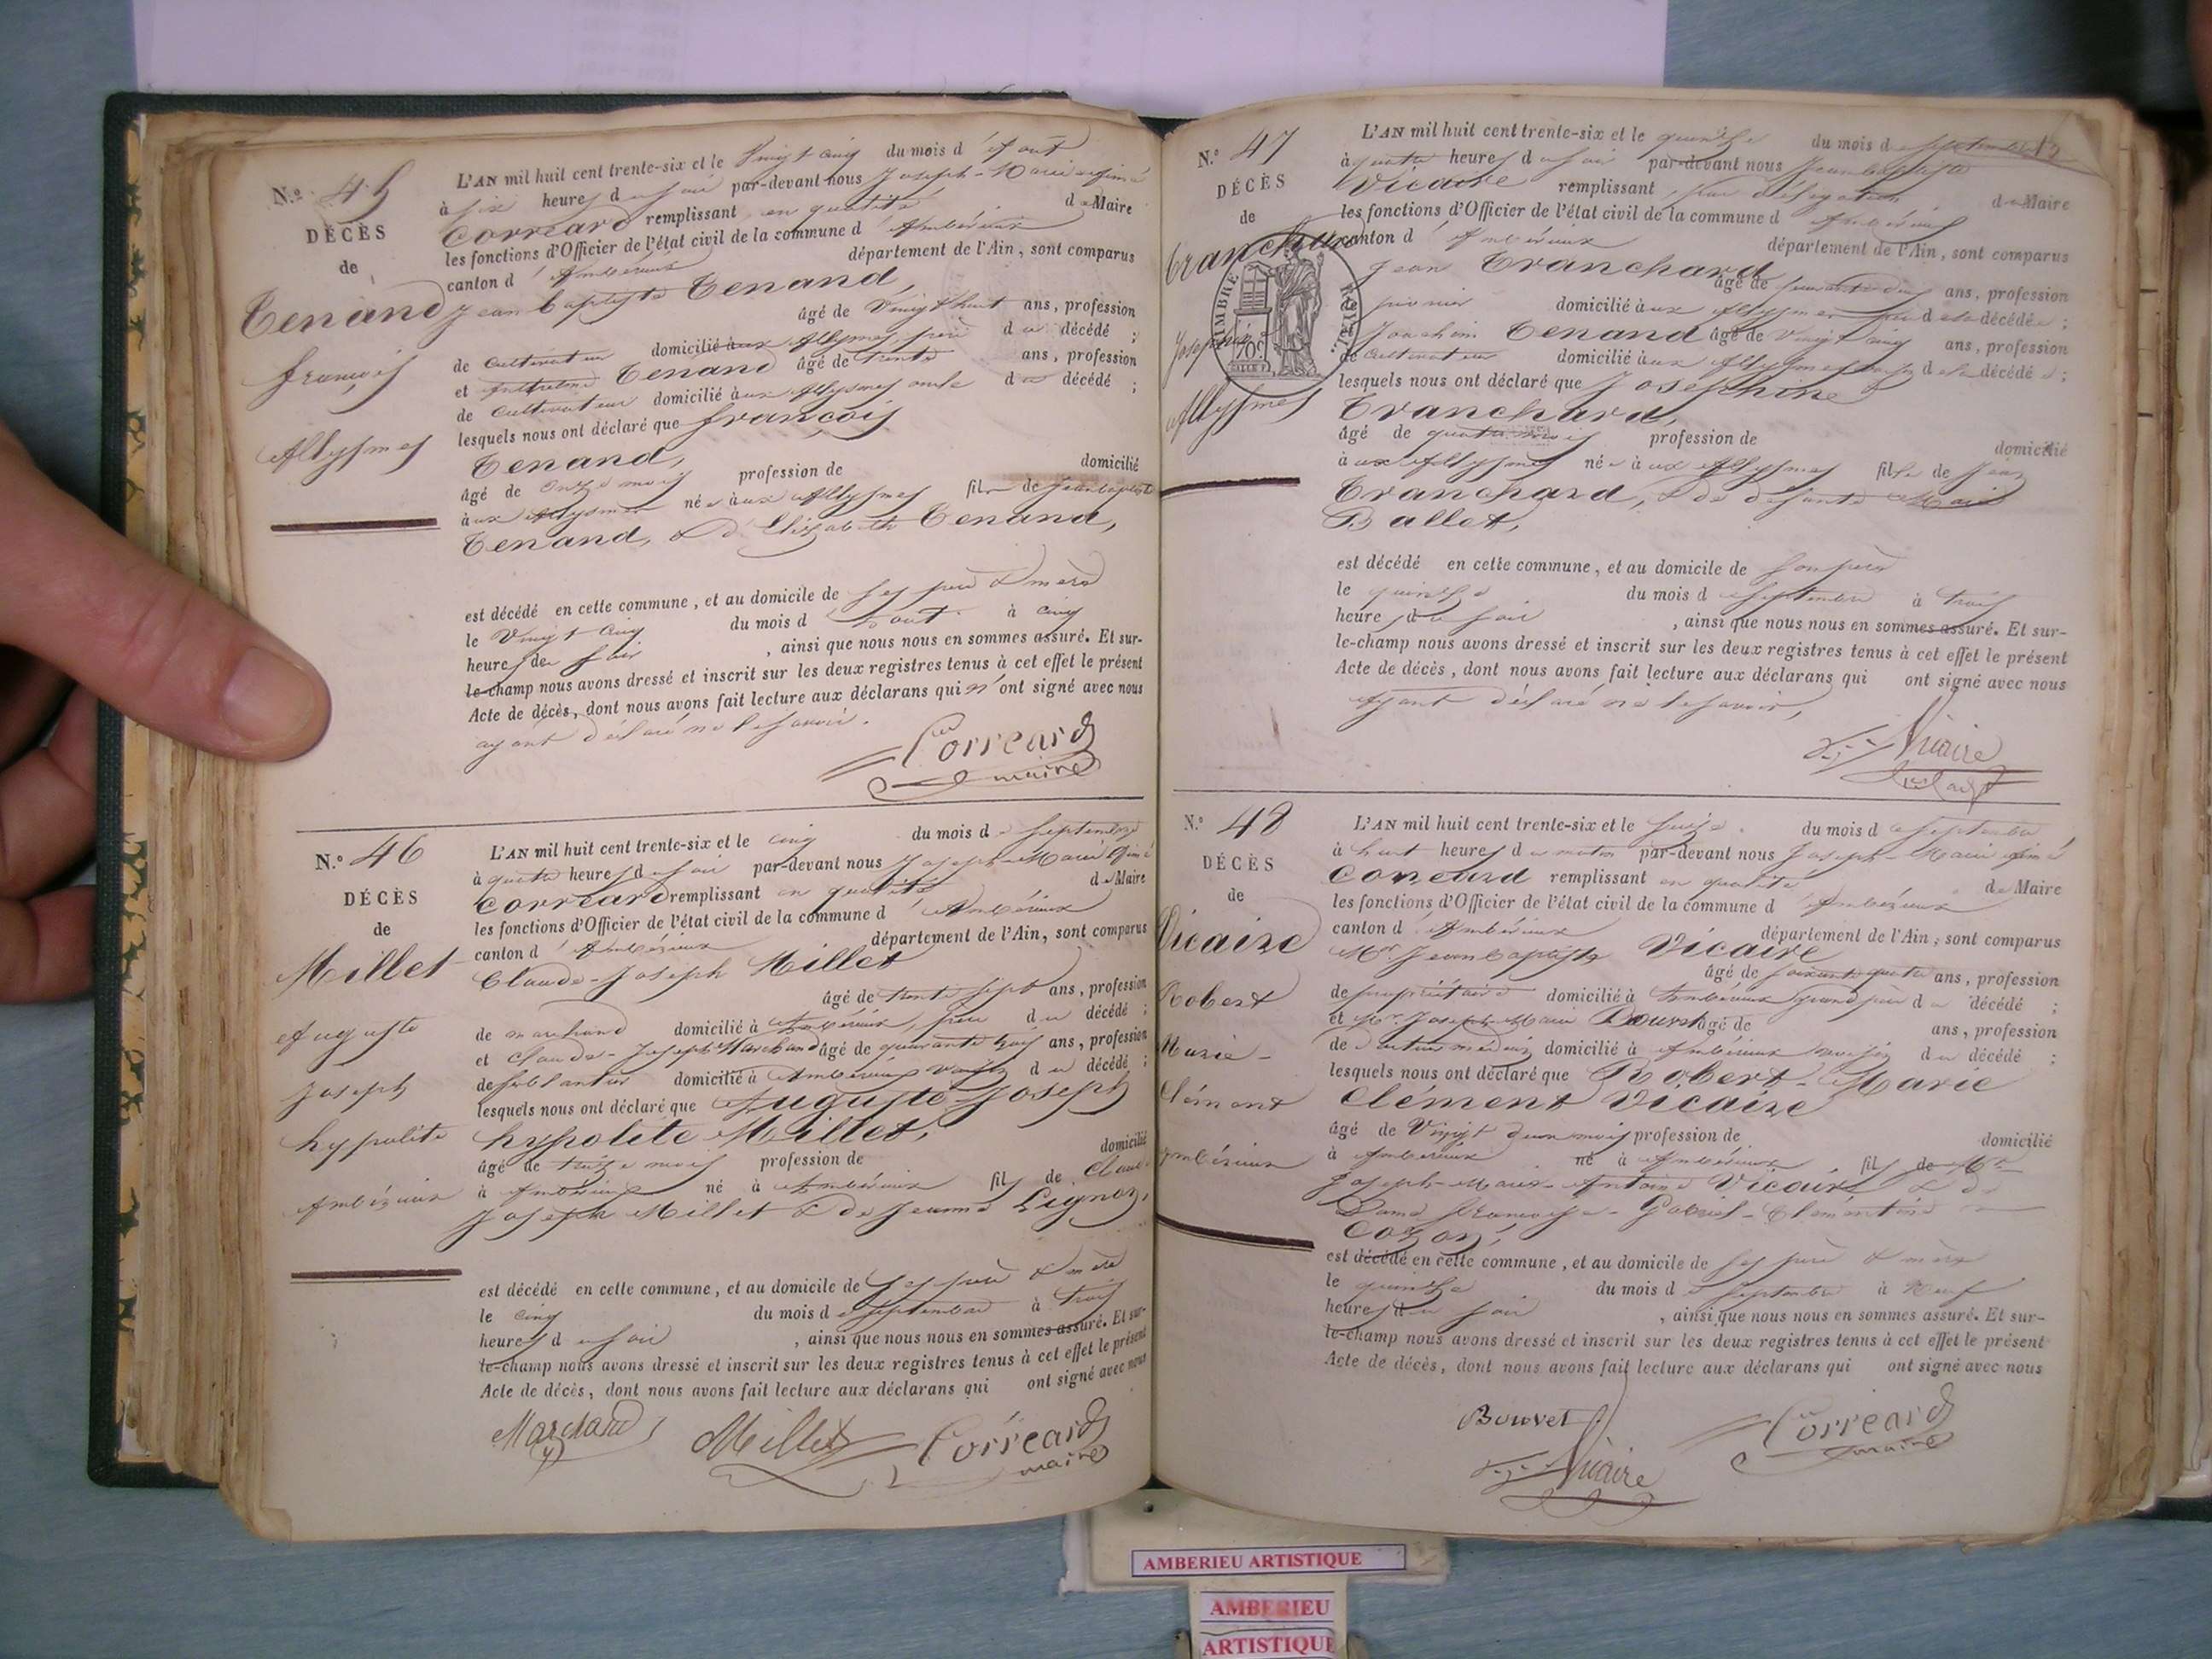 N.º 45
DÉCÈS
de
Tenand
françois
Allysmes
L'AN mil huit cent trente-six et le Vingt cinq du mois d'Aout
à six heures du soir par-devant nous Joseph-Marie aimé
Corréard remplissant en qualité de Maire
les fonctions d'Officier de l'état civil de la commune d'Ambérieux
canton d'Ambérieux département de l'Ain, sont comparus
Jean baptiste Tenand,
âgé de Vingt huit ans, profession
de cultivateur domicilié aux Allysmes père du décédé ;
et Tenand âgé de trente ans, profession
de cultivateur domicilié aux Allysmes oncle du décédé ;
lesquels nous ont déclaré que françois
Tenand,
âgé de onze mois profession de domicilié
aux Allysmes né aux Allysmes fils de Jean baptiste
Tenand, & d'Elizabeth Tenand,
est décédé en cette commune, et au domicile de ses père & mère
le Vingt cinq du mois d'aout à cinq
heures du soir, ainsi que nous nous en sommes assuré. Et sur-
le-champ nous avons dressé et inscrit sur les deux registres tenus à cet effet le présent
Acte de décès, dont nous avons fait lecture aux déclarans qui n'ont signé avec nous
ayant déclaré ne le savoir.
Corréard
maire
N.º 46
DÉCÈS
de
Millet
Auguste
Joseph
hyppolite
Ambérieux
L'AN mil huit cent trente-six et le cinq du mois de septembre
à quatre heures du soir par-devant nous Joseph-Marie Aimé
Corréard remplissant en qualité de Maire
les fonctions d'Officier de l'état civil de la commune d'Ambérieux
canton d'Ambérieux département de l'Ain, sont comparus
Claude-Joseph Millet
âgé de trente sept ans, profession
de marchand domicilié à Ambérieux, père du décédé ;
et Claude-Joseph Marchand âgé de quarante trois ans, profession
de ferblantier domicilié à Ambérieux voisin du décédé ;
lesquels nous ont déclaré que Auguste-Joseph
hyppolite Millet,
âgé de treize mois profession de domicilié
à Ambérieux né à Ambérieux fils de Claude
Joseph Millet & de Jeanne Lignoz,
est décédé en cette commune, et au domicile de ses père & mère
le cinq du mois de septembre à trois
heures du soir, ainsi que nous nous en sommes assuré. Et sur-
le-champ nous avons dressé et inscrit sur les deux registres tenus à cet effet le présent
Acte de décès, dont nous avons fait lecture aux déclarans qui ont signé avec nous
Marchand Millet Corréard
maire
N.º 47
DÉCÈS
de
Tranchard
Josephine
Allysmes
TIMBRE ROYAL
70c
L'AN mil huit cent trente-six et le quinze du mois de septembre
à quatre heures du soir par-devant nous Jean baptiste
Vicaire remplissant par délégation de Maire
les fonctions d'Officier de l'état civil de la commune d'Ambérieux
canton d'Ambérieux département de l'Ain, sont comparus
Jean Tranchard
âgé de ans, profession
de domicilié aux Allysmes père de la décédée ;
Joachim Tenand âgé de Vingt cinq ans, profession
de cultivateur domicilié aux Allysmes voisin de la décédée ;
lesquels nous ont déclaré que Josephine
Tranchard,
âgé de quatre profession de domicilié
aux Allysmes née aux Allysmes fille de Jean
Tranchard, & de defunte Marie
Ballet,
est décédé en cette commune, et au domicile de son père
le quinze du mois de septembre à trois
heures du soir, ainsi que nous nous en sommes assuré. Et sur-
le-champ nous avons dressé et inscrit sur les deux registres tenus à cet effet le présent
Acte de décès, dont nous avons fait lecture aux déclarans qui ont signé avec nous
Ayant déclaré ne le savoir,
Vicaire
N.º 48
DÉCÈS
de
Vicaire
Robert
Marie-
Clément
Ambérieux
L'AN mil huit cent trente-six et le seize du mois de septembre
à huit heures du matin par-devant nous Joseph-Marie aimé
Corréard remplissant en qualité de Maire
les fonctions d'Officier de l'état civil de la commune d'Ambérieux
canton d'Ambérieux département de l'Ain, sont comparus
Mr. Jean baptiste Vicaire
âgé de soixante quatre ans, profession
de propriétaire domicilié à Ambérieux grand père du décédé ;
et Mr. Joseph-Marie Bouvet âgé de ans, profession
de docteur médecin domicilié à Ambérieux voisin du décédé ;
lesquels nous ont déclaré que Robert-Marie
Clément Vicaire
âgé de Vingt deux mois profession de domicilié
à Ambérieux né à Ambérieux fils de Mr.
Joseph-Marie-Antoine Vicaire & de
Dame françoise-Gabriel-Clémentine
Cozon,
est décédé en cette commune, et au domicile de ses père & mère
le quinze du mois de septembre à Neuf
heures du soir, ainsi que nous nous en sommes assuré. Et sur-
le-champ nous avons dressé et inscrit sur les deux registres tenus à cet effet le présent
Acte de décès, dont nous avons fait lecture aux déclarans qui ont signé avec nous
Bouvet Corréard
maire
Vicaire
AMBERIEU ARTISTIQUE
AMBERIEU
ARTISTIQUE